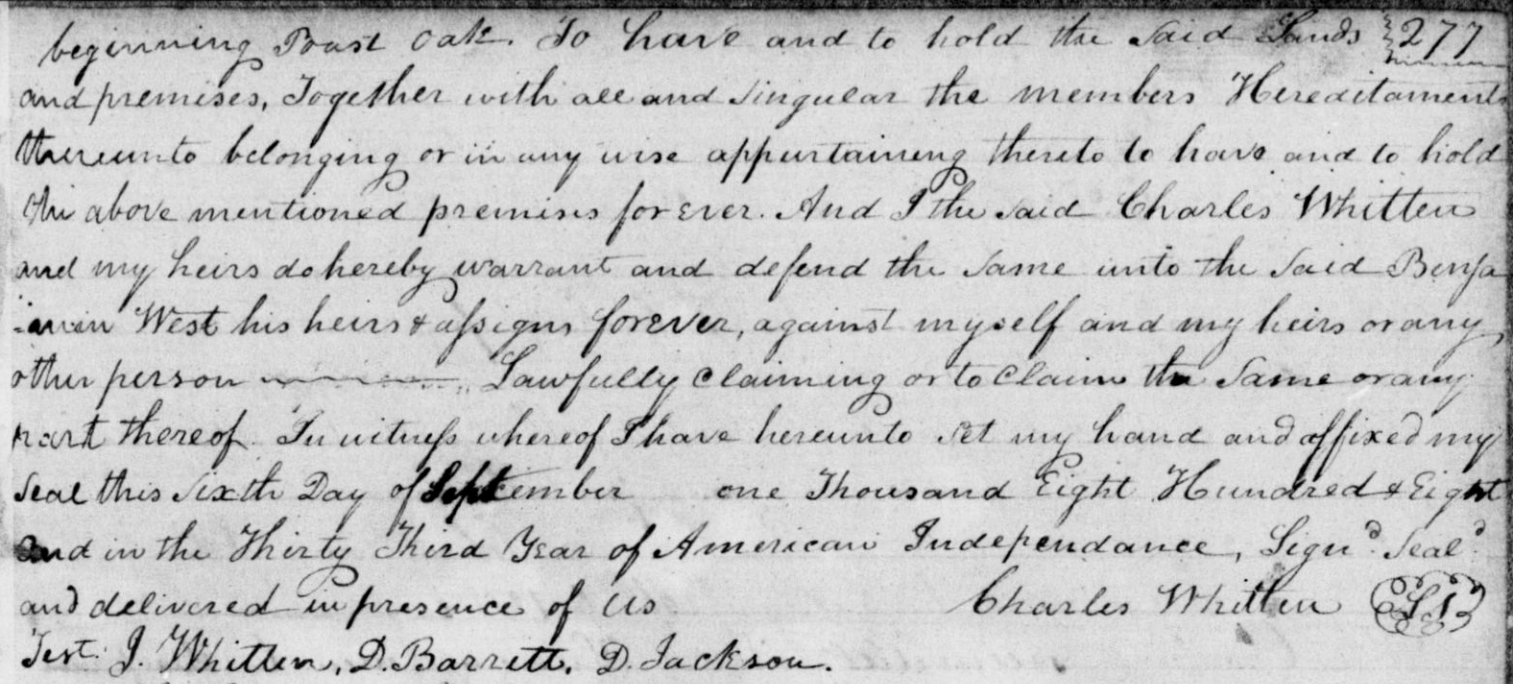 beginning Poast Oak. To have and to hold the said Lands 277
and premises, Together with all and singular the members Hereditaments
thereunto belonging or in any wise appurtaining thereto to have and to hold
the above mentioned premises for ever. And I the said Charles Whitten
and my heirs do hereby warrant and defend the same unto the said Benja
-amin West his heirs & assigns forever, against myself and my heirs or any
other person Lawfully Claiming or to Claim the Same or any
part thereof. In witness whereof I have hereunto set my hand and affixed my
seal this sixth Day of September one Thousand Eight Hundred & Eight
and in the Thirty Third Year of American Independance, Sign'd Seal'd
and delivered in presence of Us Charles Whitten LS
Test. J. Whitten, D. Barrett, D. Jackson.